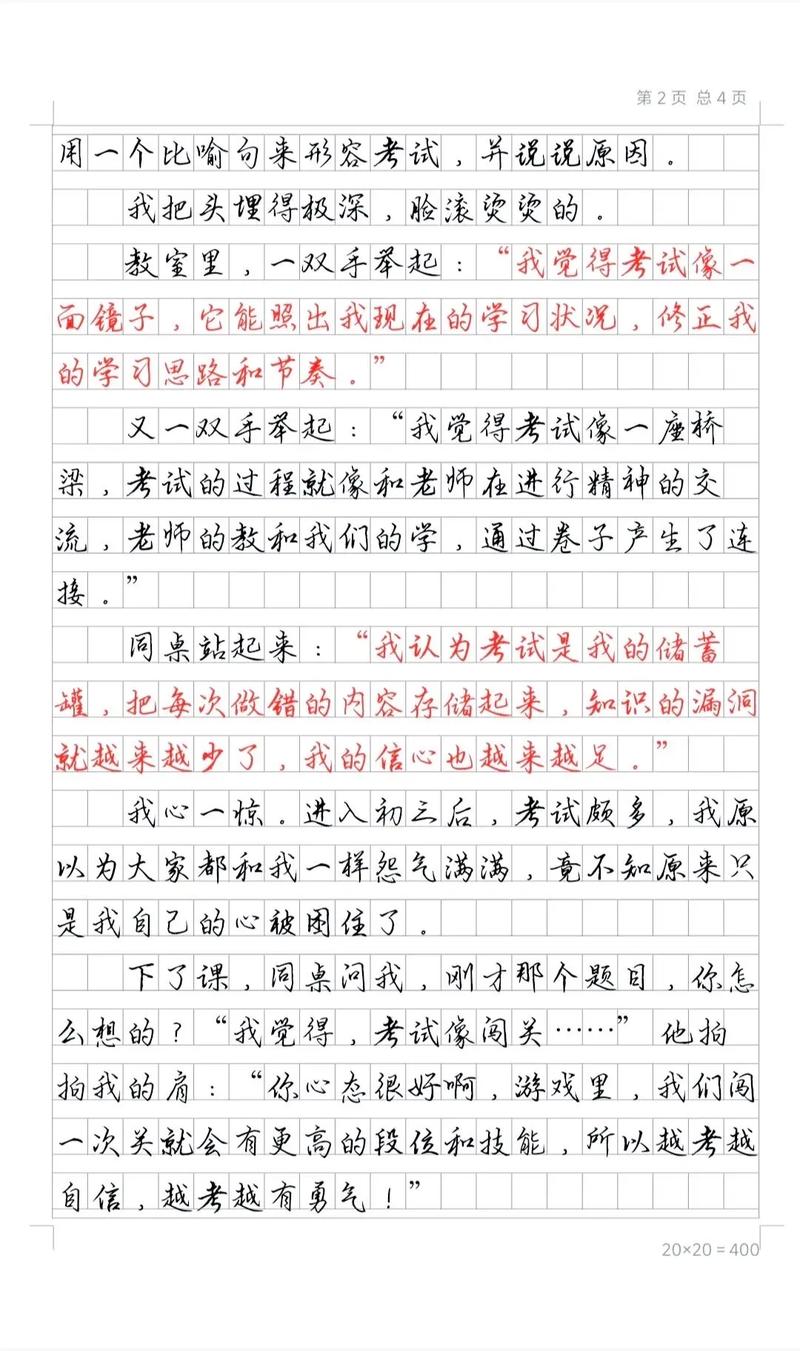 第2页 总4页
用一个比喻句来形容考试，并说说原因。
我把头埋得极深，脸滚烫烫的。
教室里，一双手举起：“我觉得考试像一
面镜子，它能照出我现在的学习状况，修正我
的学习思路和节奏。”
又一双手举起：“我觉得考试像一座桥
梁，考试的过程就像和老师在进行精神的交
流，老师的教和我们的学，通过卷子产生了连
接。”
同桌站起来：“我认为考试是我的储蓄
罐，把每次做错的内容存储起来，知识的漏洞
就越来越少了，我的信心也越来越足。”
我心一惊。进入初三后，考试颇多，我原
以为大家都和我一样怨气满满，竟不知原来只
是我自己的心被困住了。
下了课，同桌问我，刚才那个题目，你怎
么想的？“我觉得，考试像闯关……”他拍
拍我的肩：“你心态很好啊，游戏里，我们闯
一次关就会有更高的段位和技能，所以越考越
自信，越考越有勇气！”
20×20=400